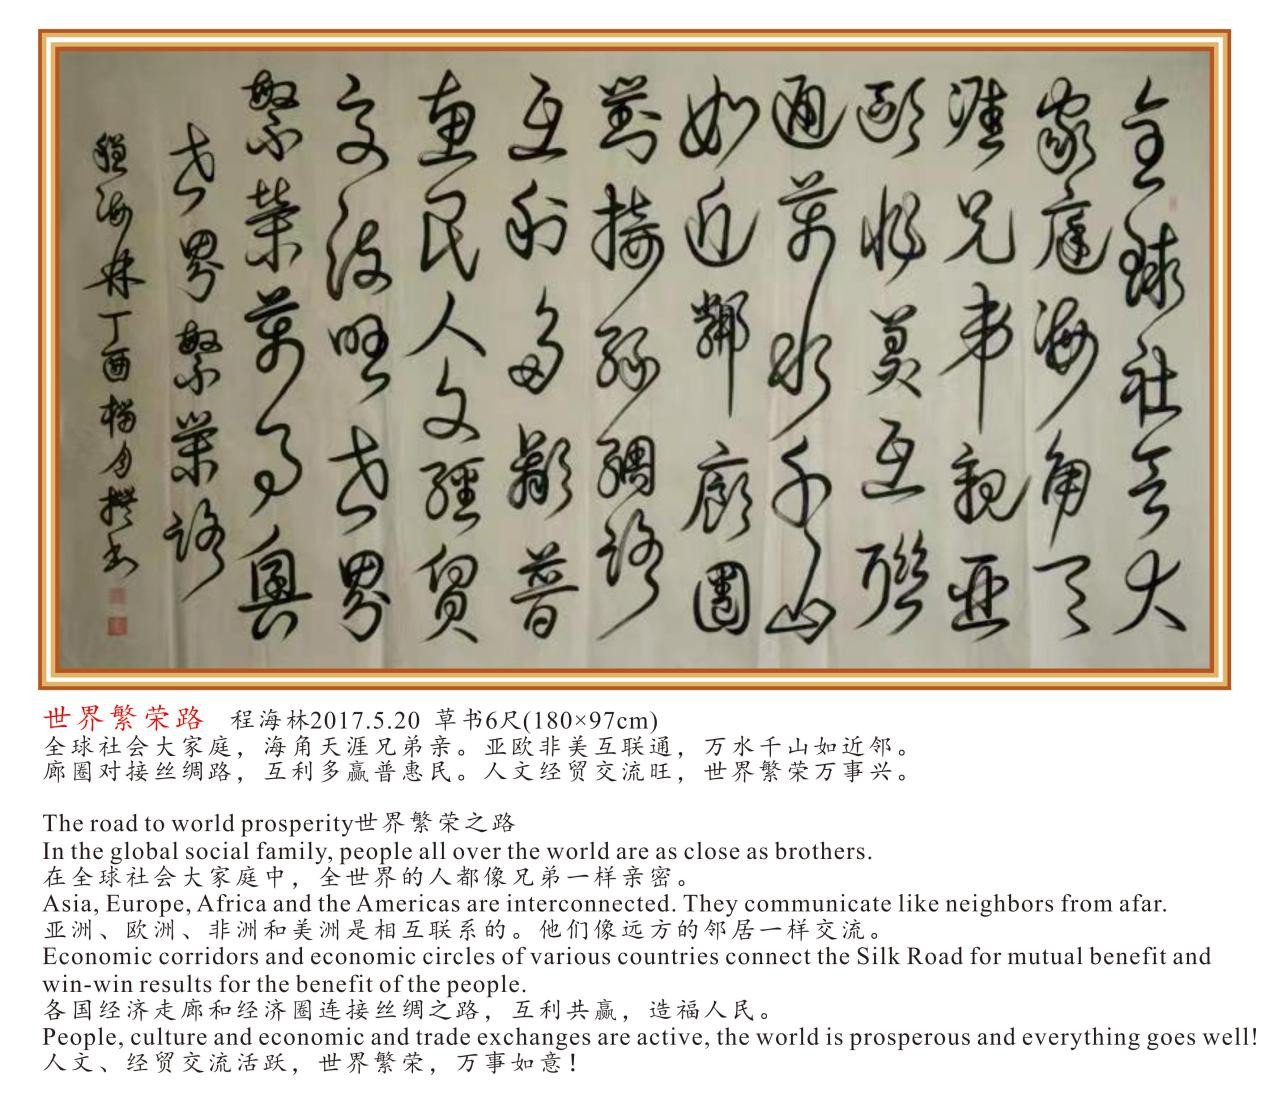 全球社会大
家庭海角天
涯兄弟親亞
歐非美互聯
通萬水千山
如近鄰廊圈
對接絲綢路
互利多贏普
惠民人文經貿
交流旺世界
繁榮萬事興
世界繁榮路
程海林丁酉榴月撰书
世界繁荣路 程海林2017.5.20 草书6尺(180×97cm)
全球社会大家庭，海角天涯兄弟亲。亚欧非美互联通，万水千山如近邻。
廊圈对接丝绸路，互利多赢普惠民。人文经贸交流旺，世界繁荣万事兴。
The road to world prosperity世界繁荣之路
In the global social family, people all over the world are as close as brothers.
在全球社会大家庭中，全世界的人都像兄弟一样亲密。
Asia, Europe, Africa and the Americas are interconnected. They communicate like neighbors from afar.
亚洲、欧洲、非洲和美洲是相互联系的。他们像远方的邻居一样交流。
Economic corridors and economic circles of various countries connect the Silk Road for mutual benefit and
win-win results for the benefit of the people.
各国经济走廊和经济圈连接丝绸之路，互利共赢，造福人民。
People, culture and economic and trade exchanges are active, the world is prosperous and everything goes well!
人文、经贸交流活跃，世界繁荣，万事如意！